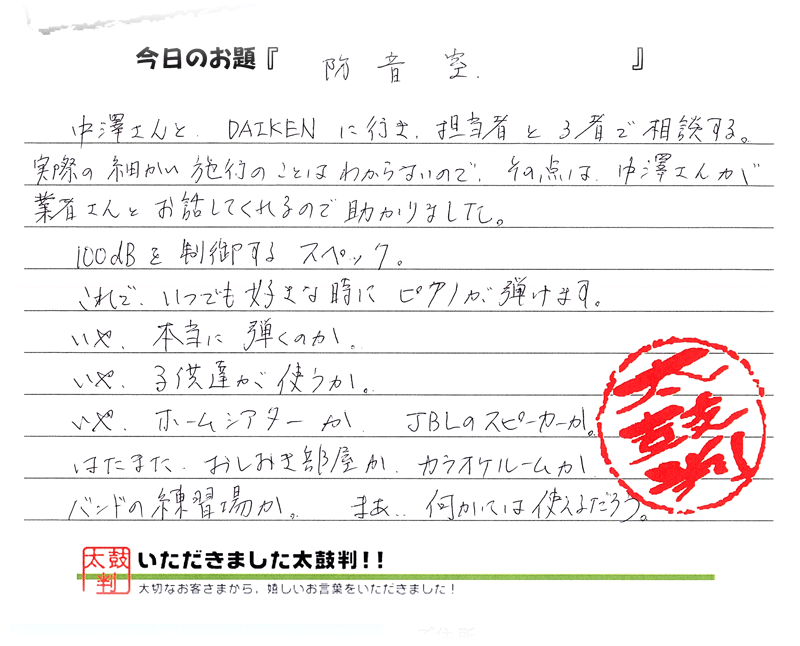 今日のお題『 防音室. 』
中澤さんと、DAIKENに行き、担当者と3者で相談する。
実際の細かい施行のことはわからないので、その点は、中澤さんが
業者さんとお話してくれるので助かりました。
100dBを制御するスペック。
これで、いつでも好きな時にピアノが弾けます。
いや、本当に弾くのか。
いや、子供達が使うか。
いや、ホームシアターか、JBLのスピーカーか。
はたまた、おしおき部屋か、カラオケルームか
バンドの練習場か。 まあ、何かいては使えるだろう。
太鼓判
太鼓判
いただきました太鼓判!!
大切なお客さまから、嬉しいお言葉をいただきました!